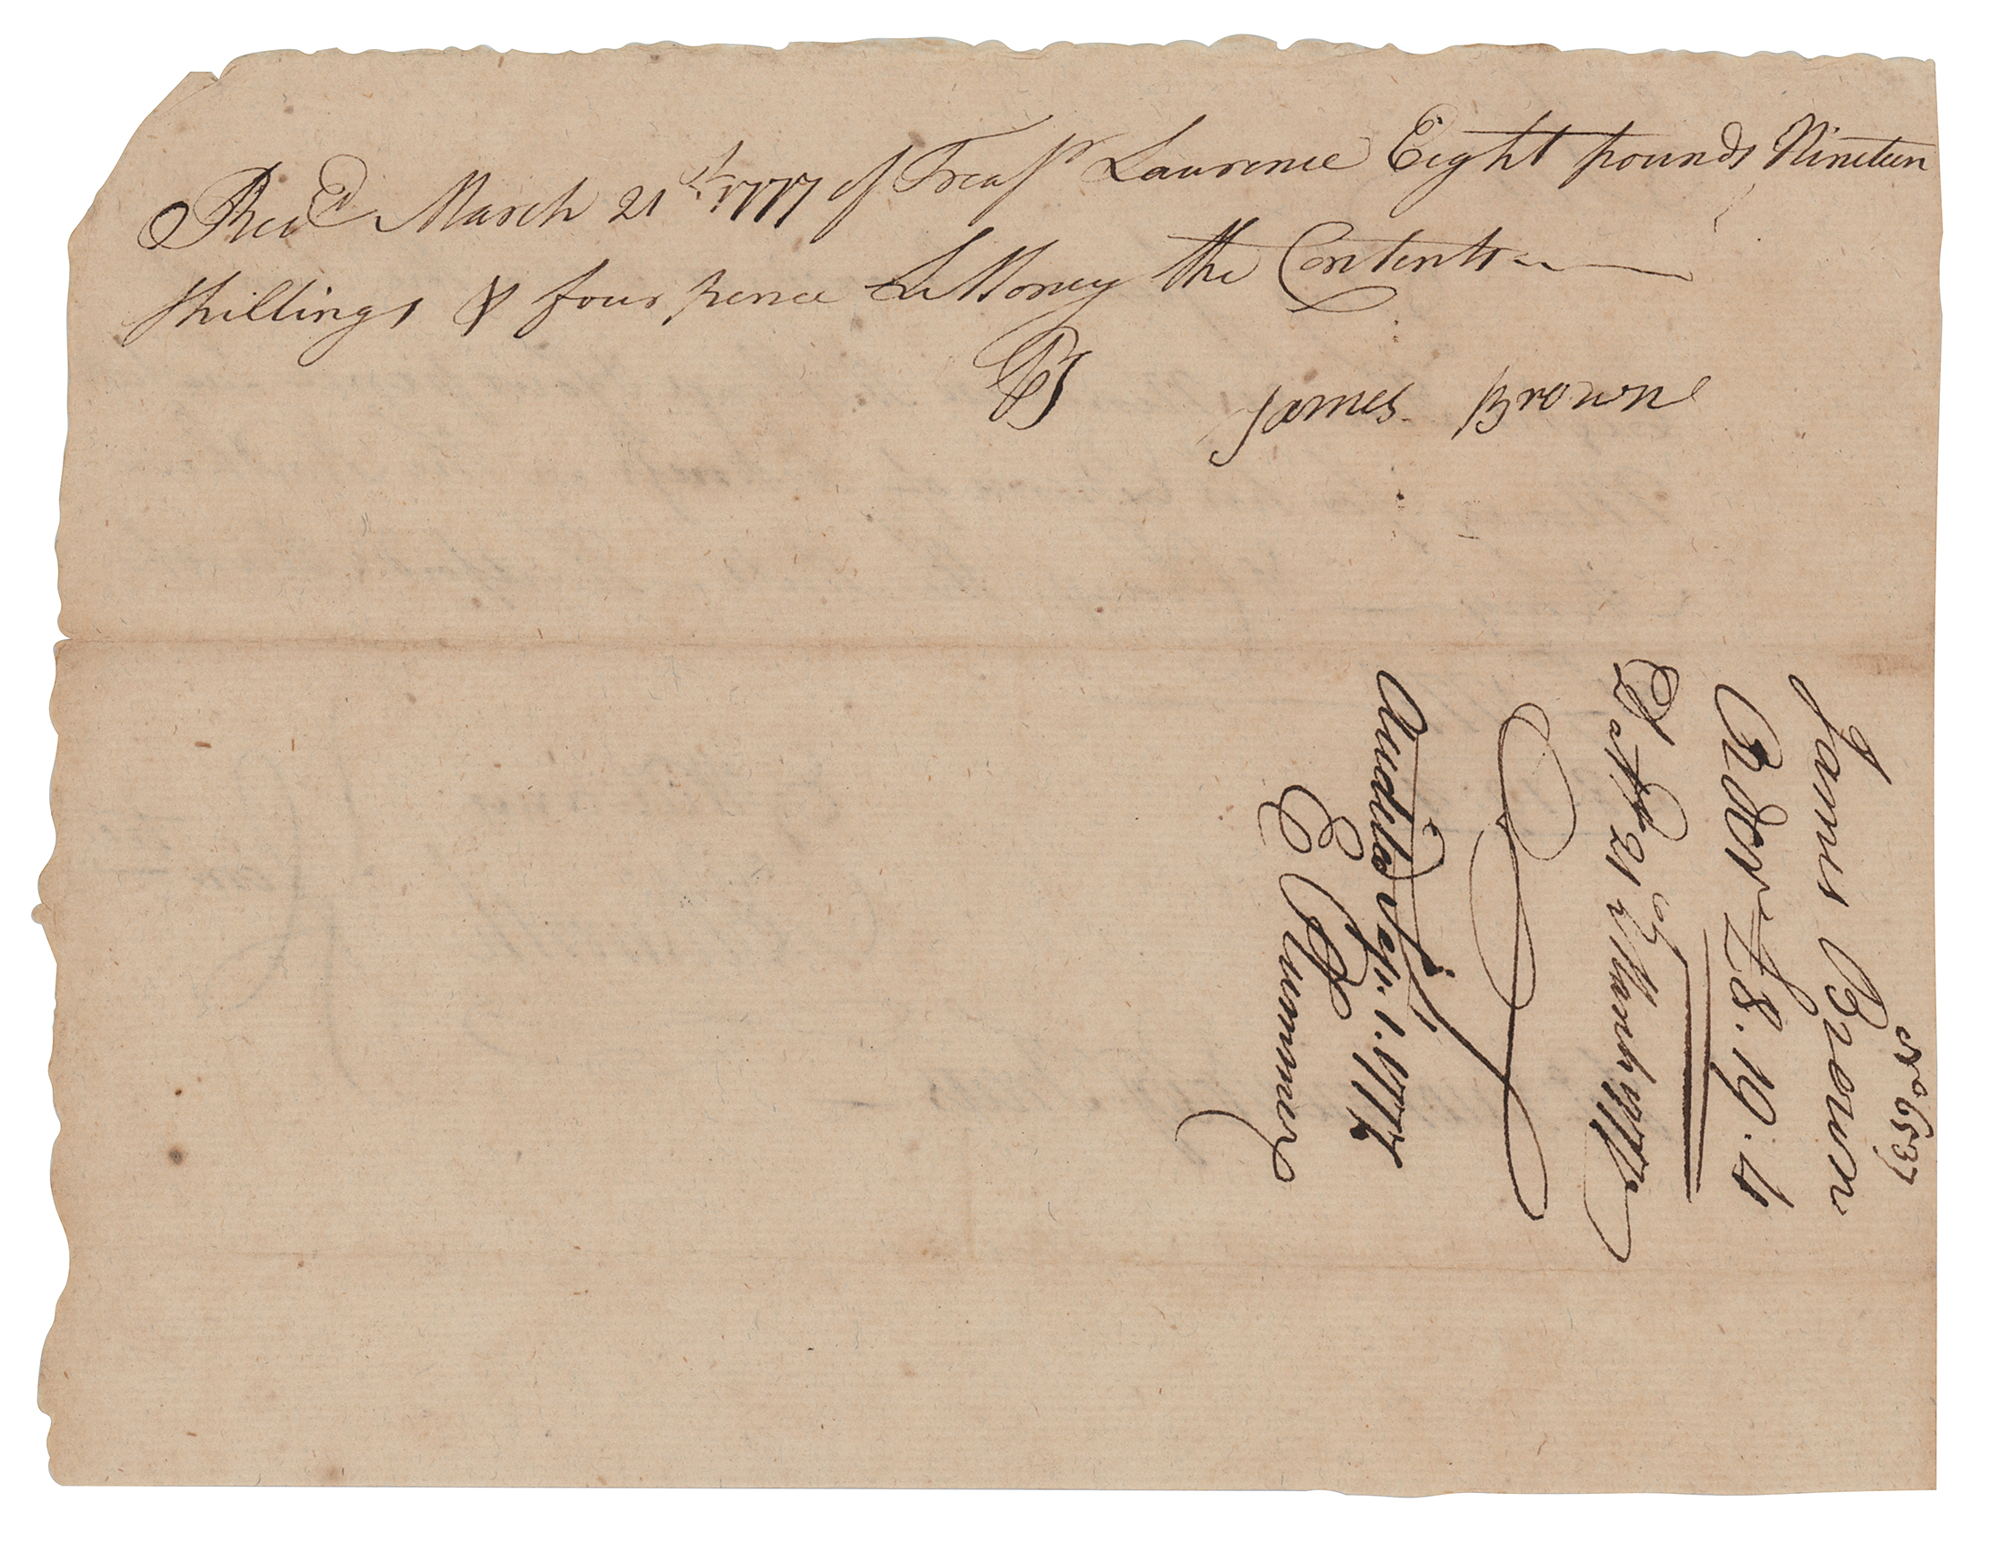 Recd March 21st 1777 of Treasr Laurence Eight pounds Nineteen
shillings & four pence L Money the Contents
Pr James Browne
No 6537
James Brown
Order £8.19.4
Dat 21st March 1777
Audited
1.1777
E Plummer